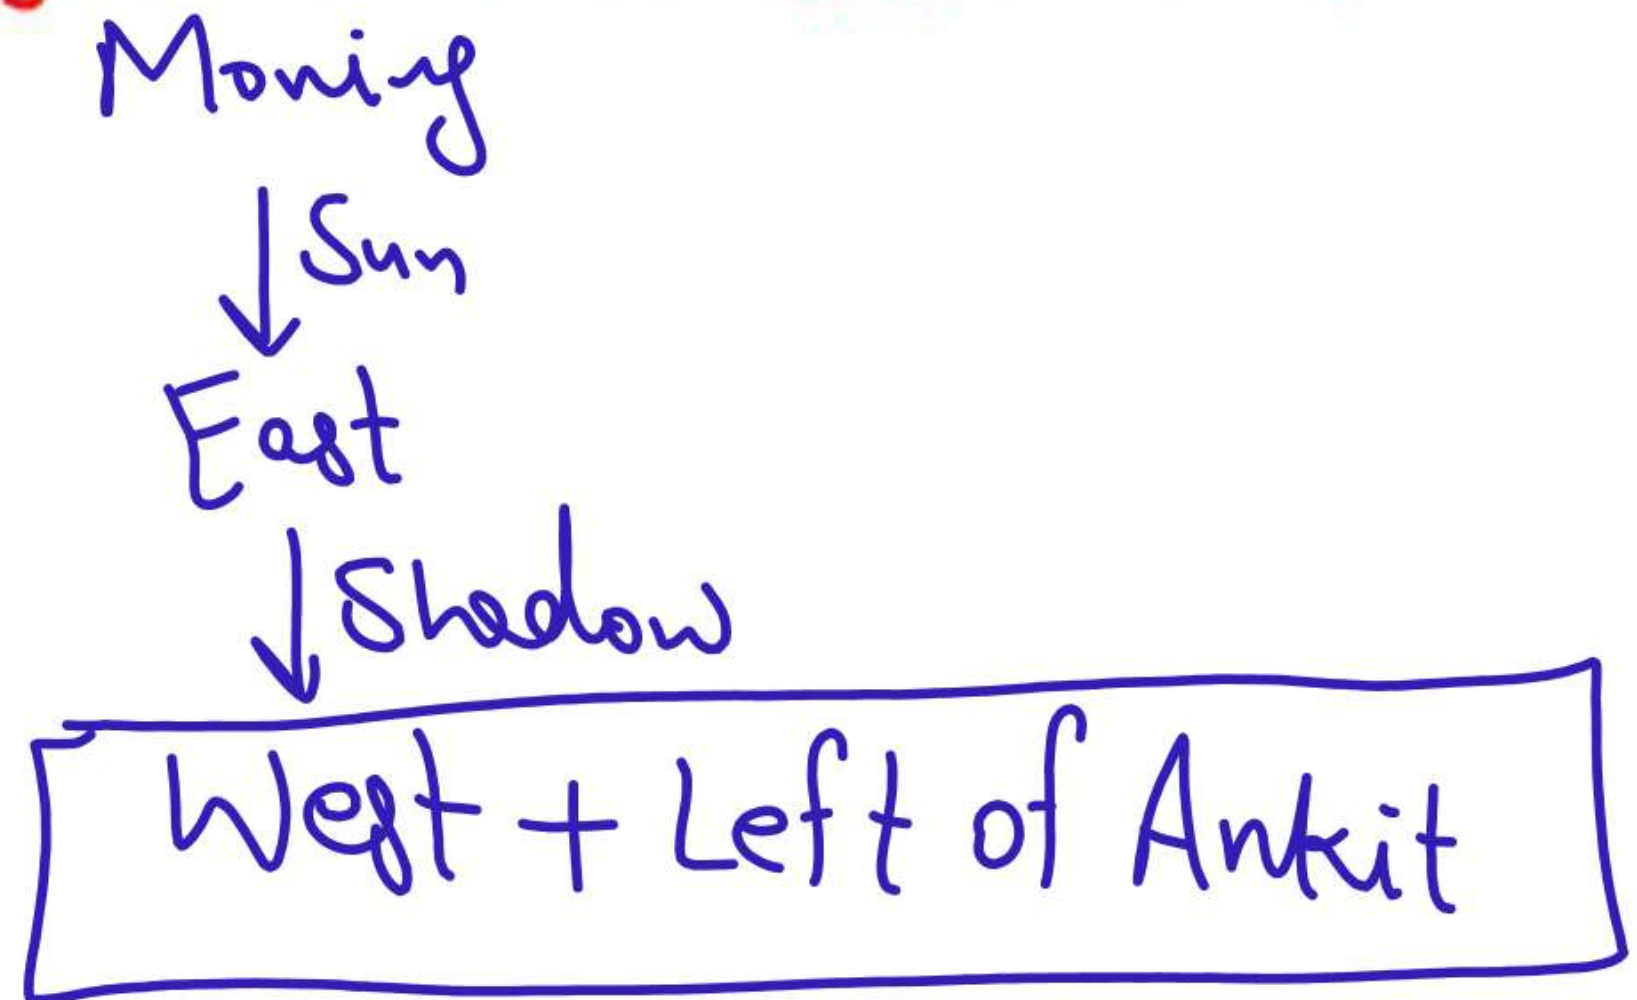 Moning
Sun
East
Shadow
West + Left of Ankit